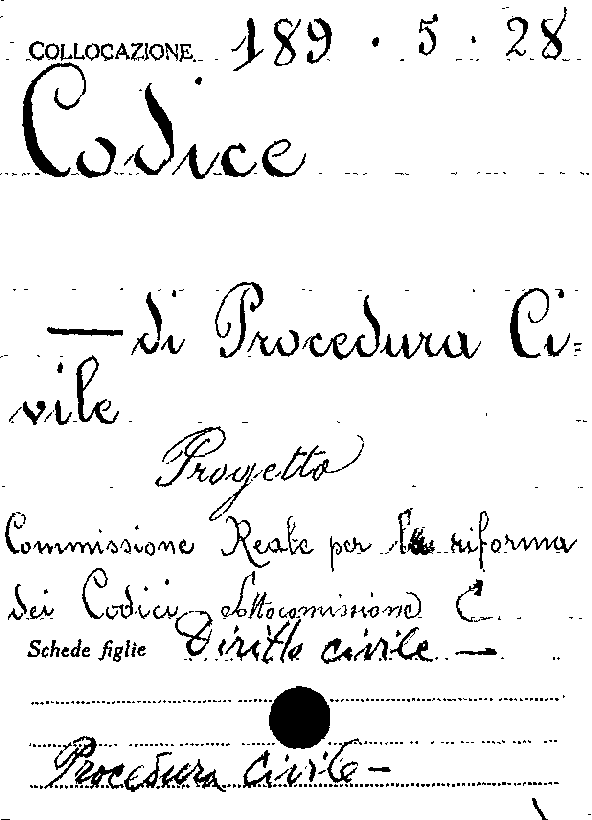 COLLOCAZIONE 189 . 5 . 28
Codice
— di Procedura Ci=
vile
Progetto
Commissione Reale per la riforma
dei Codici Sottocomissione C.
Schede figlie Diritto civile —
Procedura Civile —